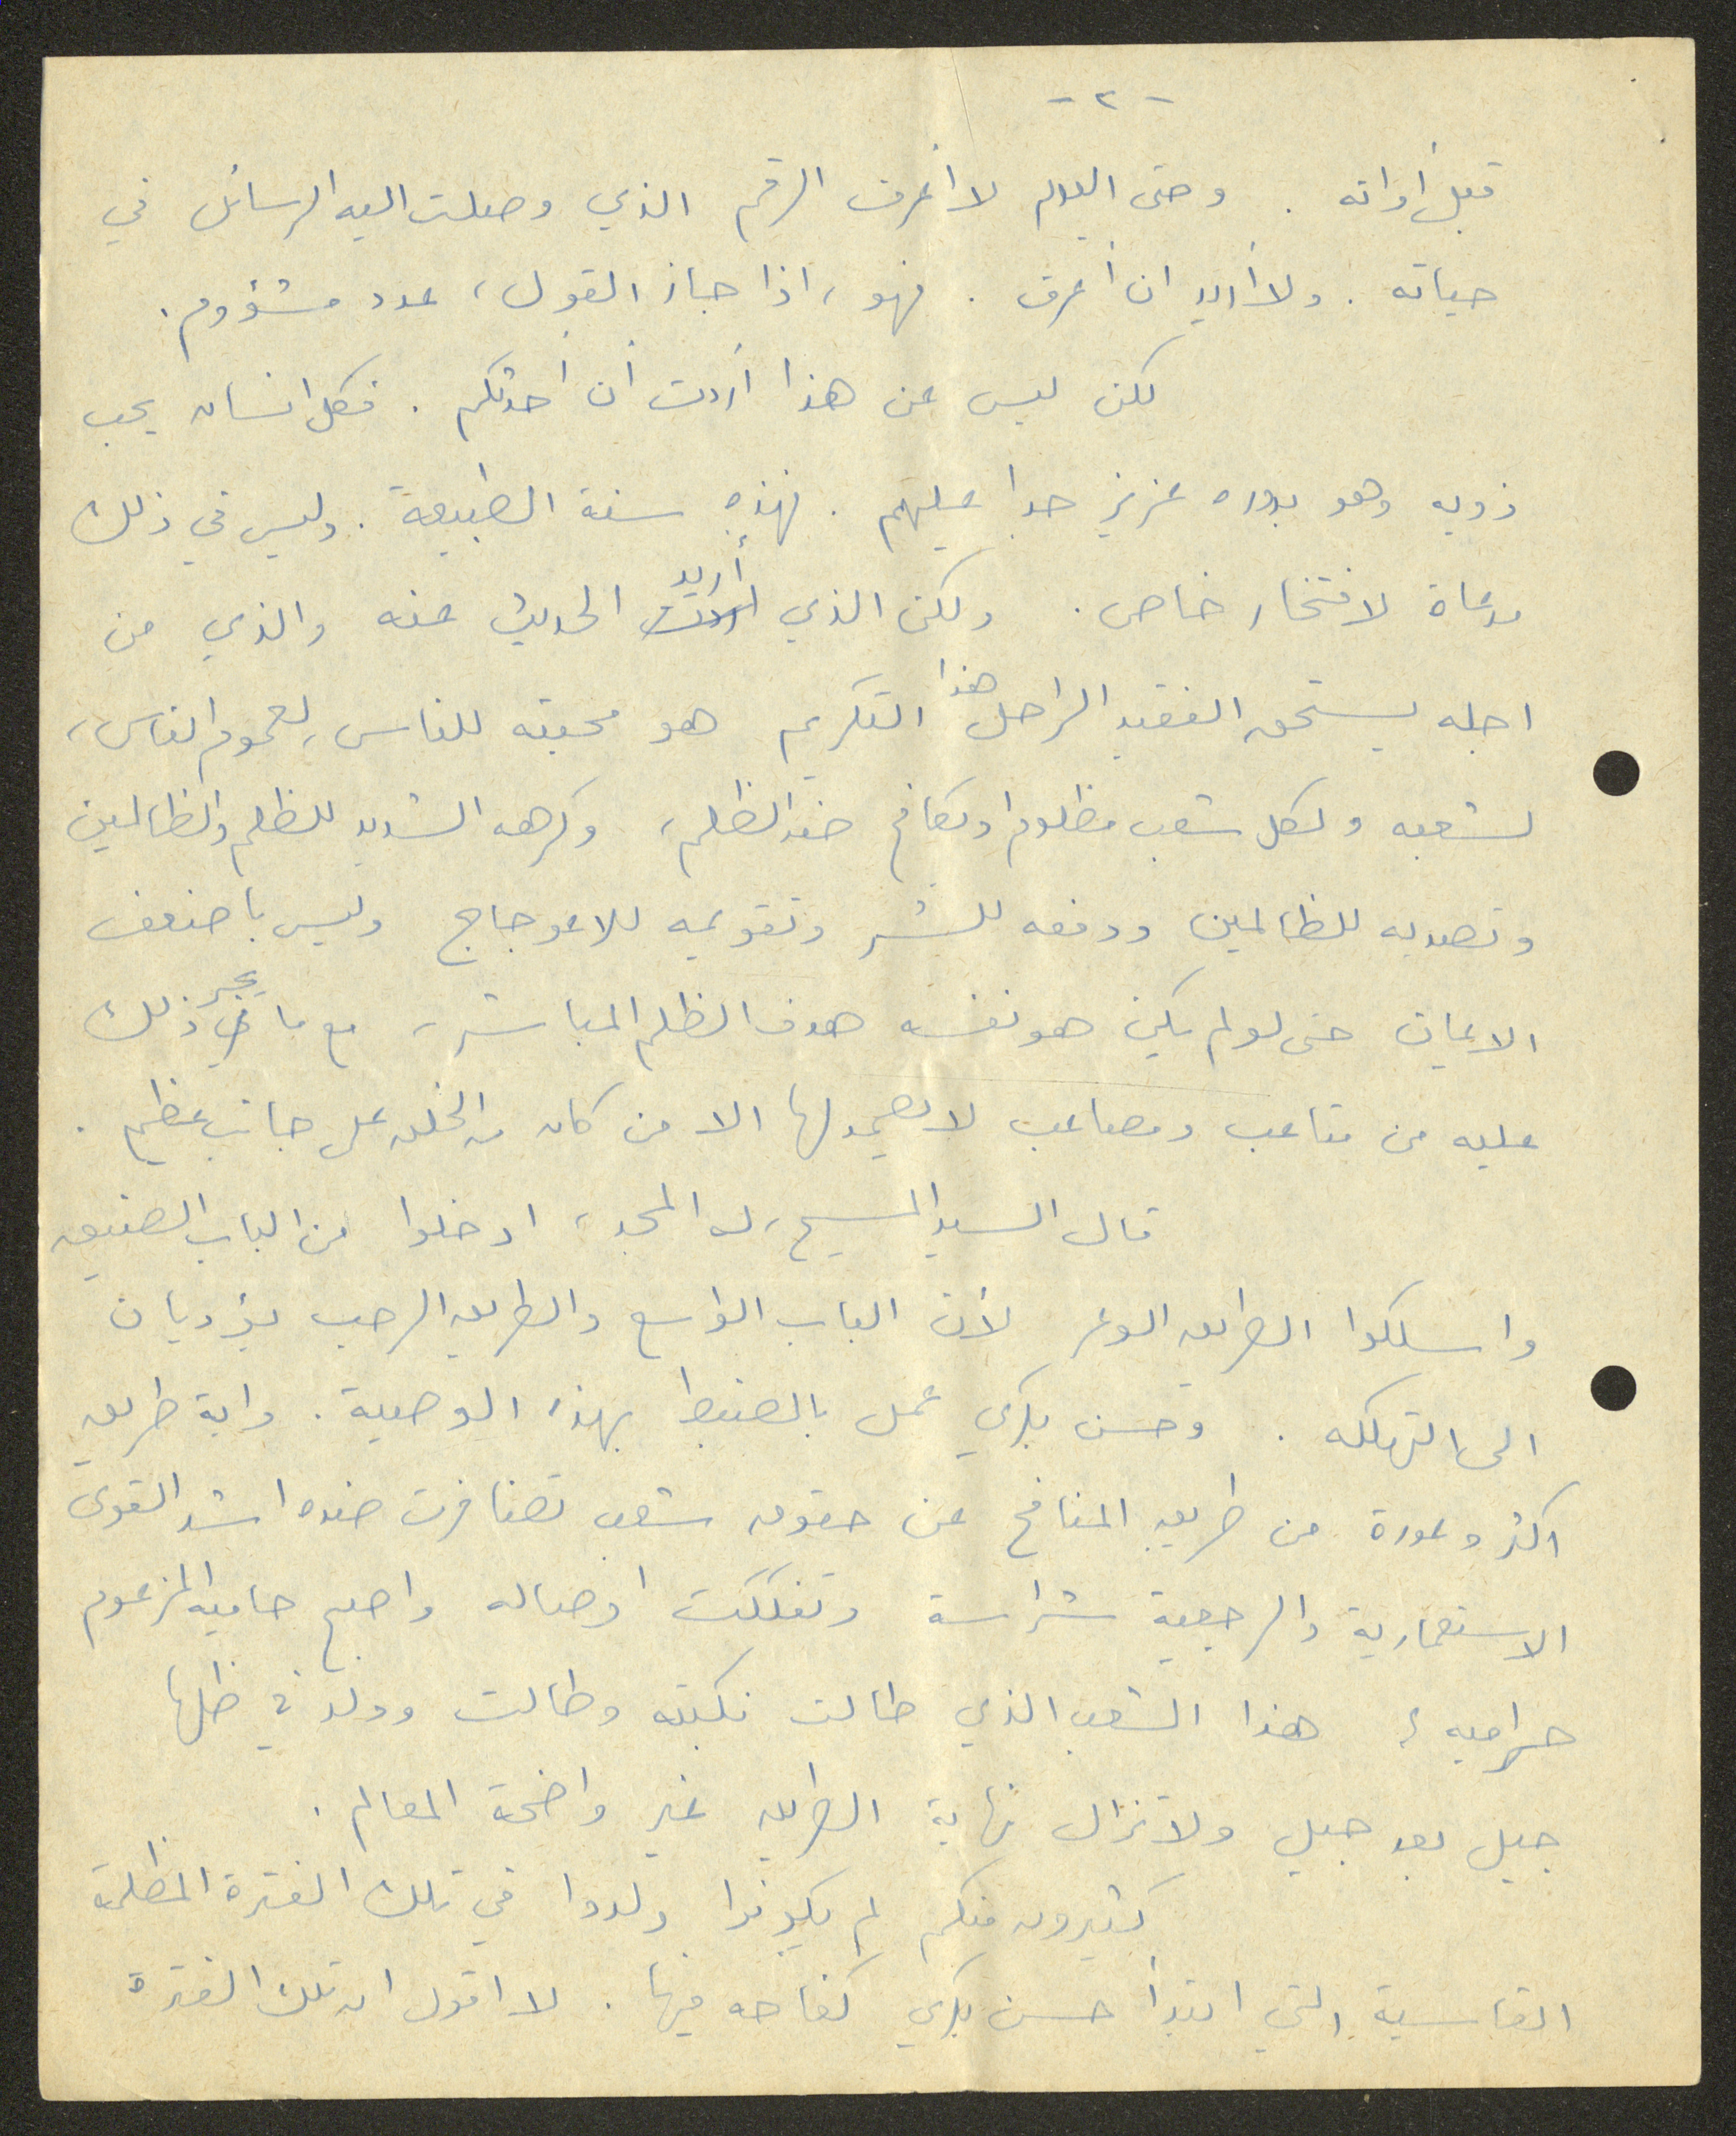 - ٢ -
قبل أوانه . وحتى اليوم لا أعرف الرقم الذي وصلت اليه الرسائل في
حياته . ولا أريد ان أعرف . فهو ، اذا جاز القول ، عدد مشؤوم .
لكن ليس عن هذا أردت أن أحدثكم . فكل انسان يحب
ذويه وهو بدوره عزيز جدا عليهم . فهذه سنة الطبيعة . وليس في ذلك
مدعاة لافتخار خاص . ولكن الذي أريد الحديث عنه والذي من
اجله يستحق الفقيد الراحل هذا التكريم هو محبته للناس ، لعموم الناس ،
لشعبه ولكل شعب مظلوم او مكافح ضد الظلم ، وكرهه الشديد للظلم والظالمين
وتصديه للظالمين ودفعه للشر وتقويمه للاعوجاج وليس باضعف
الايمان حتى لو لم يكن هو نفسه هدف الظلم المباشر ، مع ما يجر ذلك
عليه من متاعب ومصاعب لا يصمد لها الا من كان من الخلق على جانب عظيم .
قال السيد المسيح ، له المجد ، ادخلوا من الباب الضيق
واسلكوا الطريق الوعر لأن الباب الواسع والطريق الرحب يؤديان
الى التهلكه . وحسن بكري عمل بالضبط بهذه الوصية . واية طريق
اكثر وعورة من طريق المنافح عن حقوق شعب تضافرت ضده اشد القوى
الاستعمارية والرجعية شراسة وتفككت اوصاله واصبح حاميه المزعوم
حراميه ؟ هذا الشعب الذي طالت نكبته وطالت وولد في ظلها
جيل بعد جيل ولا تزال نهاية الطريق غير واضحة المعالم .
كثيرون منكم لم يكونوا ولدوا في تلك الفترة المظلمة
القاسية التي ابتدأ حسن بكري كفاحه فيها . لا اقول ان تلك الفترة